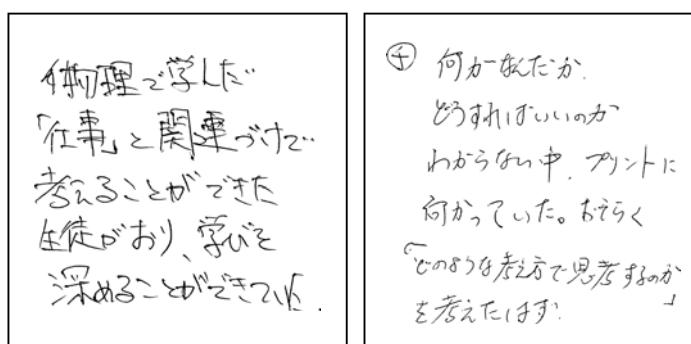 物理で学んだ
「仕事」と関連づけて
考えることができた
生徒がおり、学びを
深めることができていた.
チ 何がなんだか.
どうすればいいのか
わからない中、プリントに
向かっていた。おそらく
「どのような考え方で思考するのか」
を考えたはず.